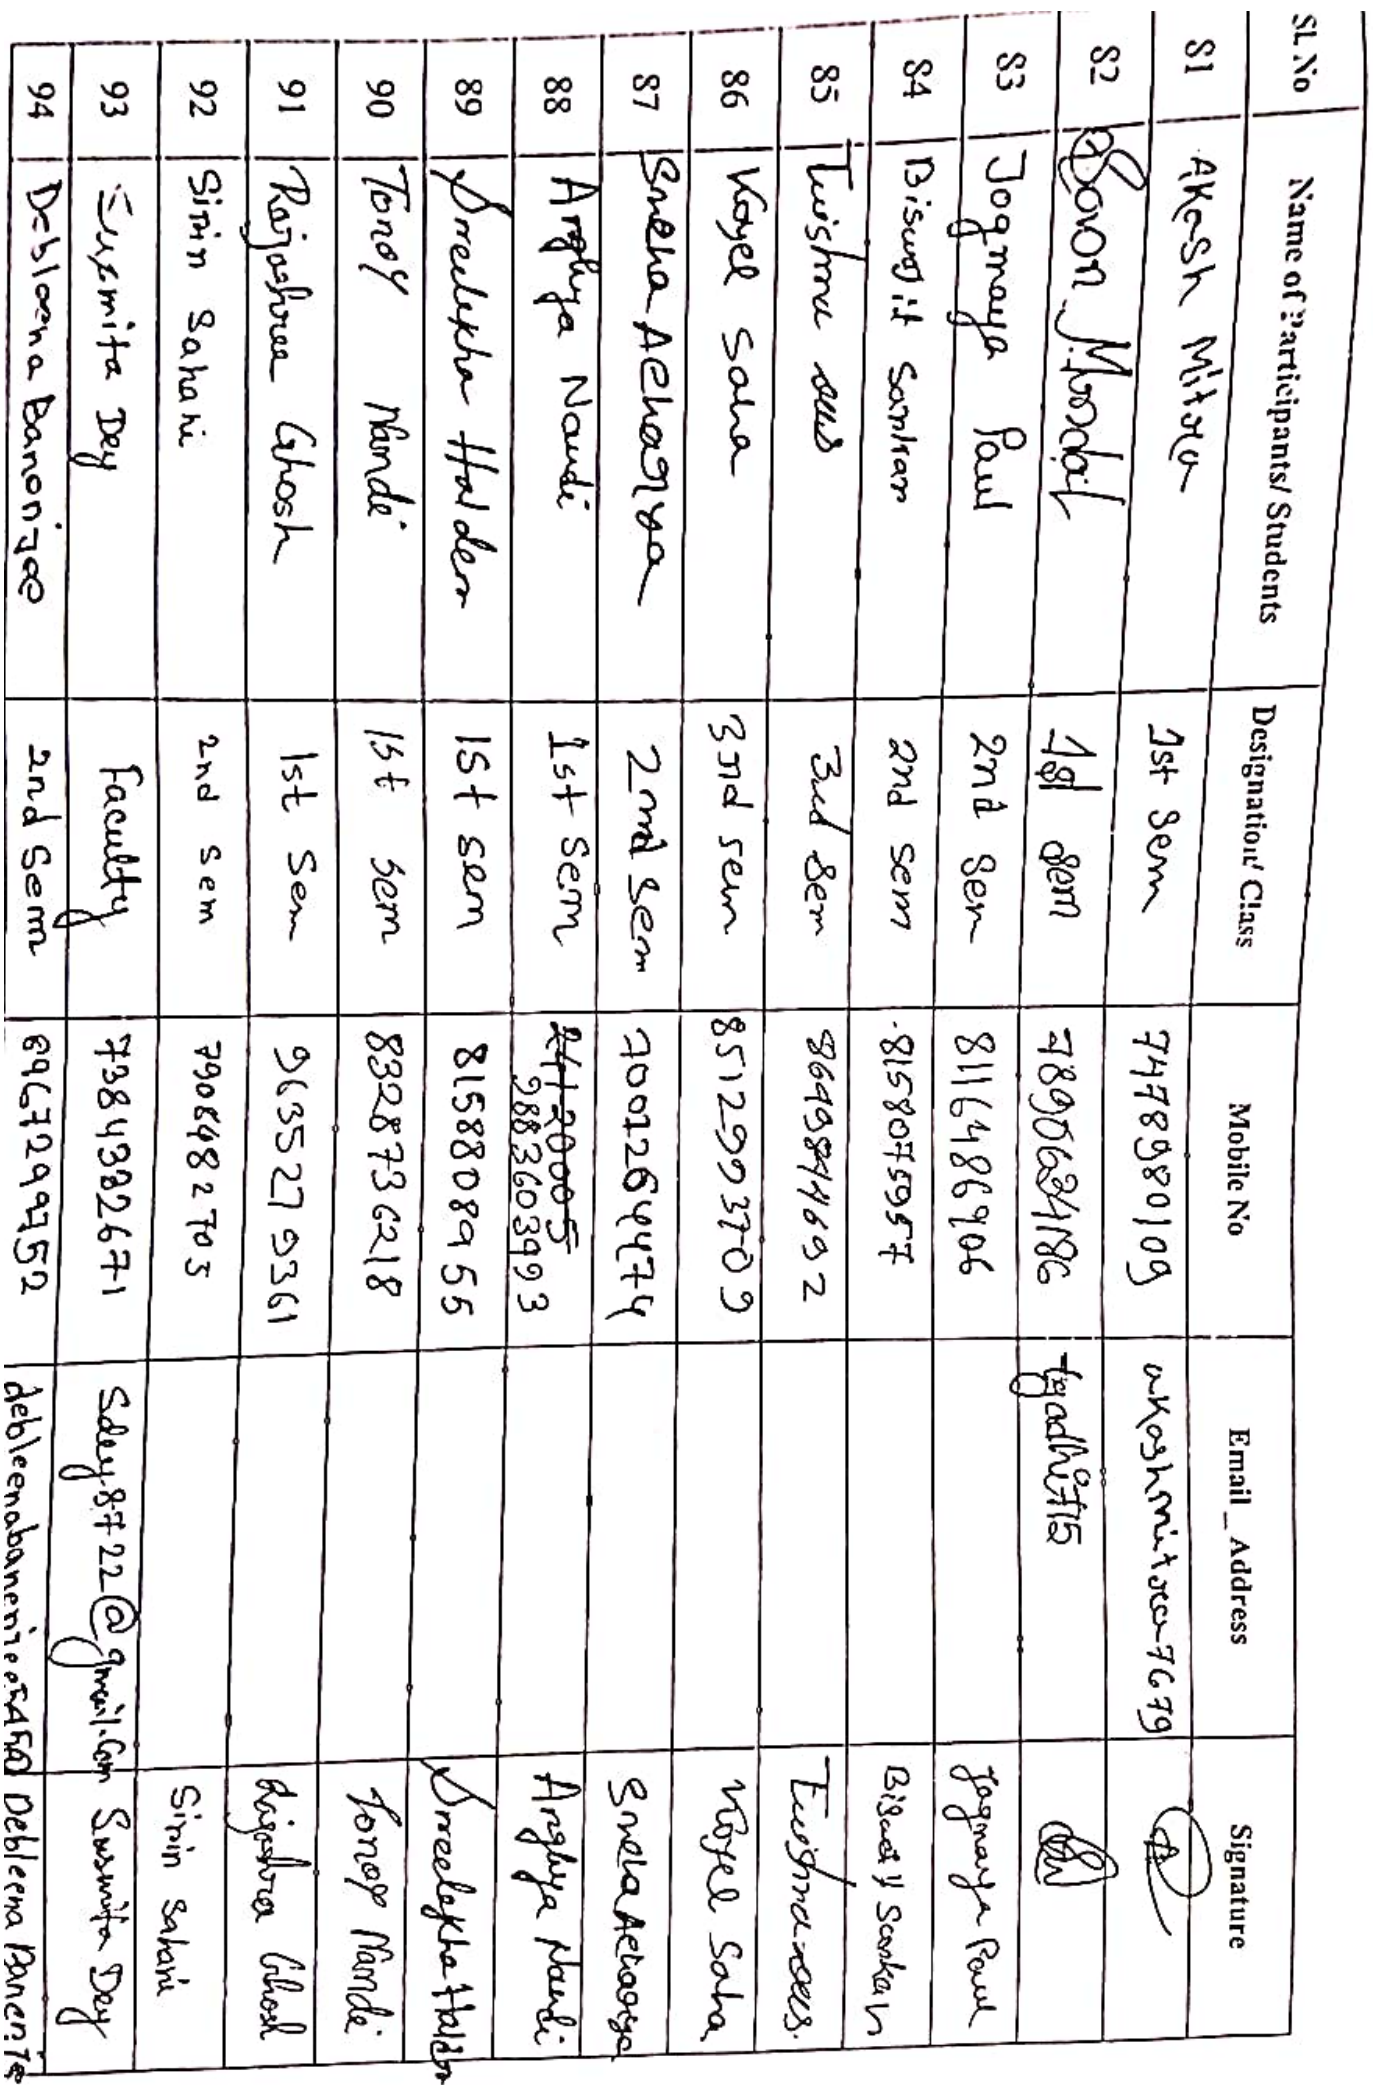 SL No Name of Participants/ Students Designation/ Class Mobile No Email_ Address Signature
81 AKaSh Mitra 1st Sem 7478980109 akashmitra7679
82 Sovon Mondal 1st Sem 7890634186
83 Jogmaya Paul 2nd Sem 8116486906 Jogmaya Paul
84 Biswajit Sarkar 2nd Sem 8158075957 Biswajit Sarkar
85 Tuishma das 3rd Sem 8649844692 Tuishma das.
86 Koyel Saha 3rd sem 8512993709 Koyel Saha
87 Sneha Acharya 2nd Sem 7001264474 Sneha Acharya
88 Arghya Nandi 1st Sem 24120005 9883603993 Arghya Nandi
89 Sreelekha Halder 1st sem 8158808955 Sreelekha Halder
90 Tonoy Nandi 1st Sem 8328736218 Tonoy Nandi
91 Rajashree Ghosh 1st Sem 9635279361 Rajashree Ghosh
92 Sirin Sahani 2nd Sem 7908482705 Sirin Sahani
93 Susmita Dey Faculty 7384382671 Sdey.8722@gmail.com Susmita Dey
94 Debleena Banerjee 2nd Sem 8967299952 Debleena Banerjee